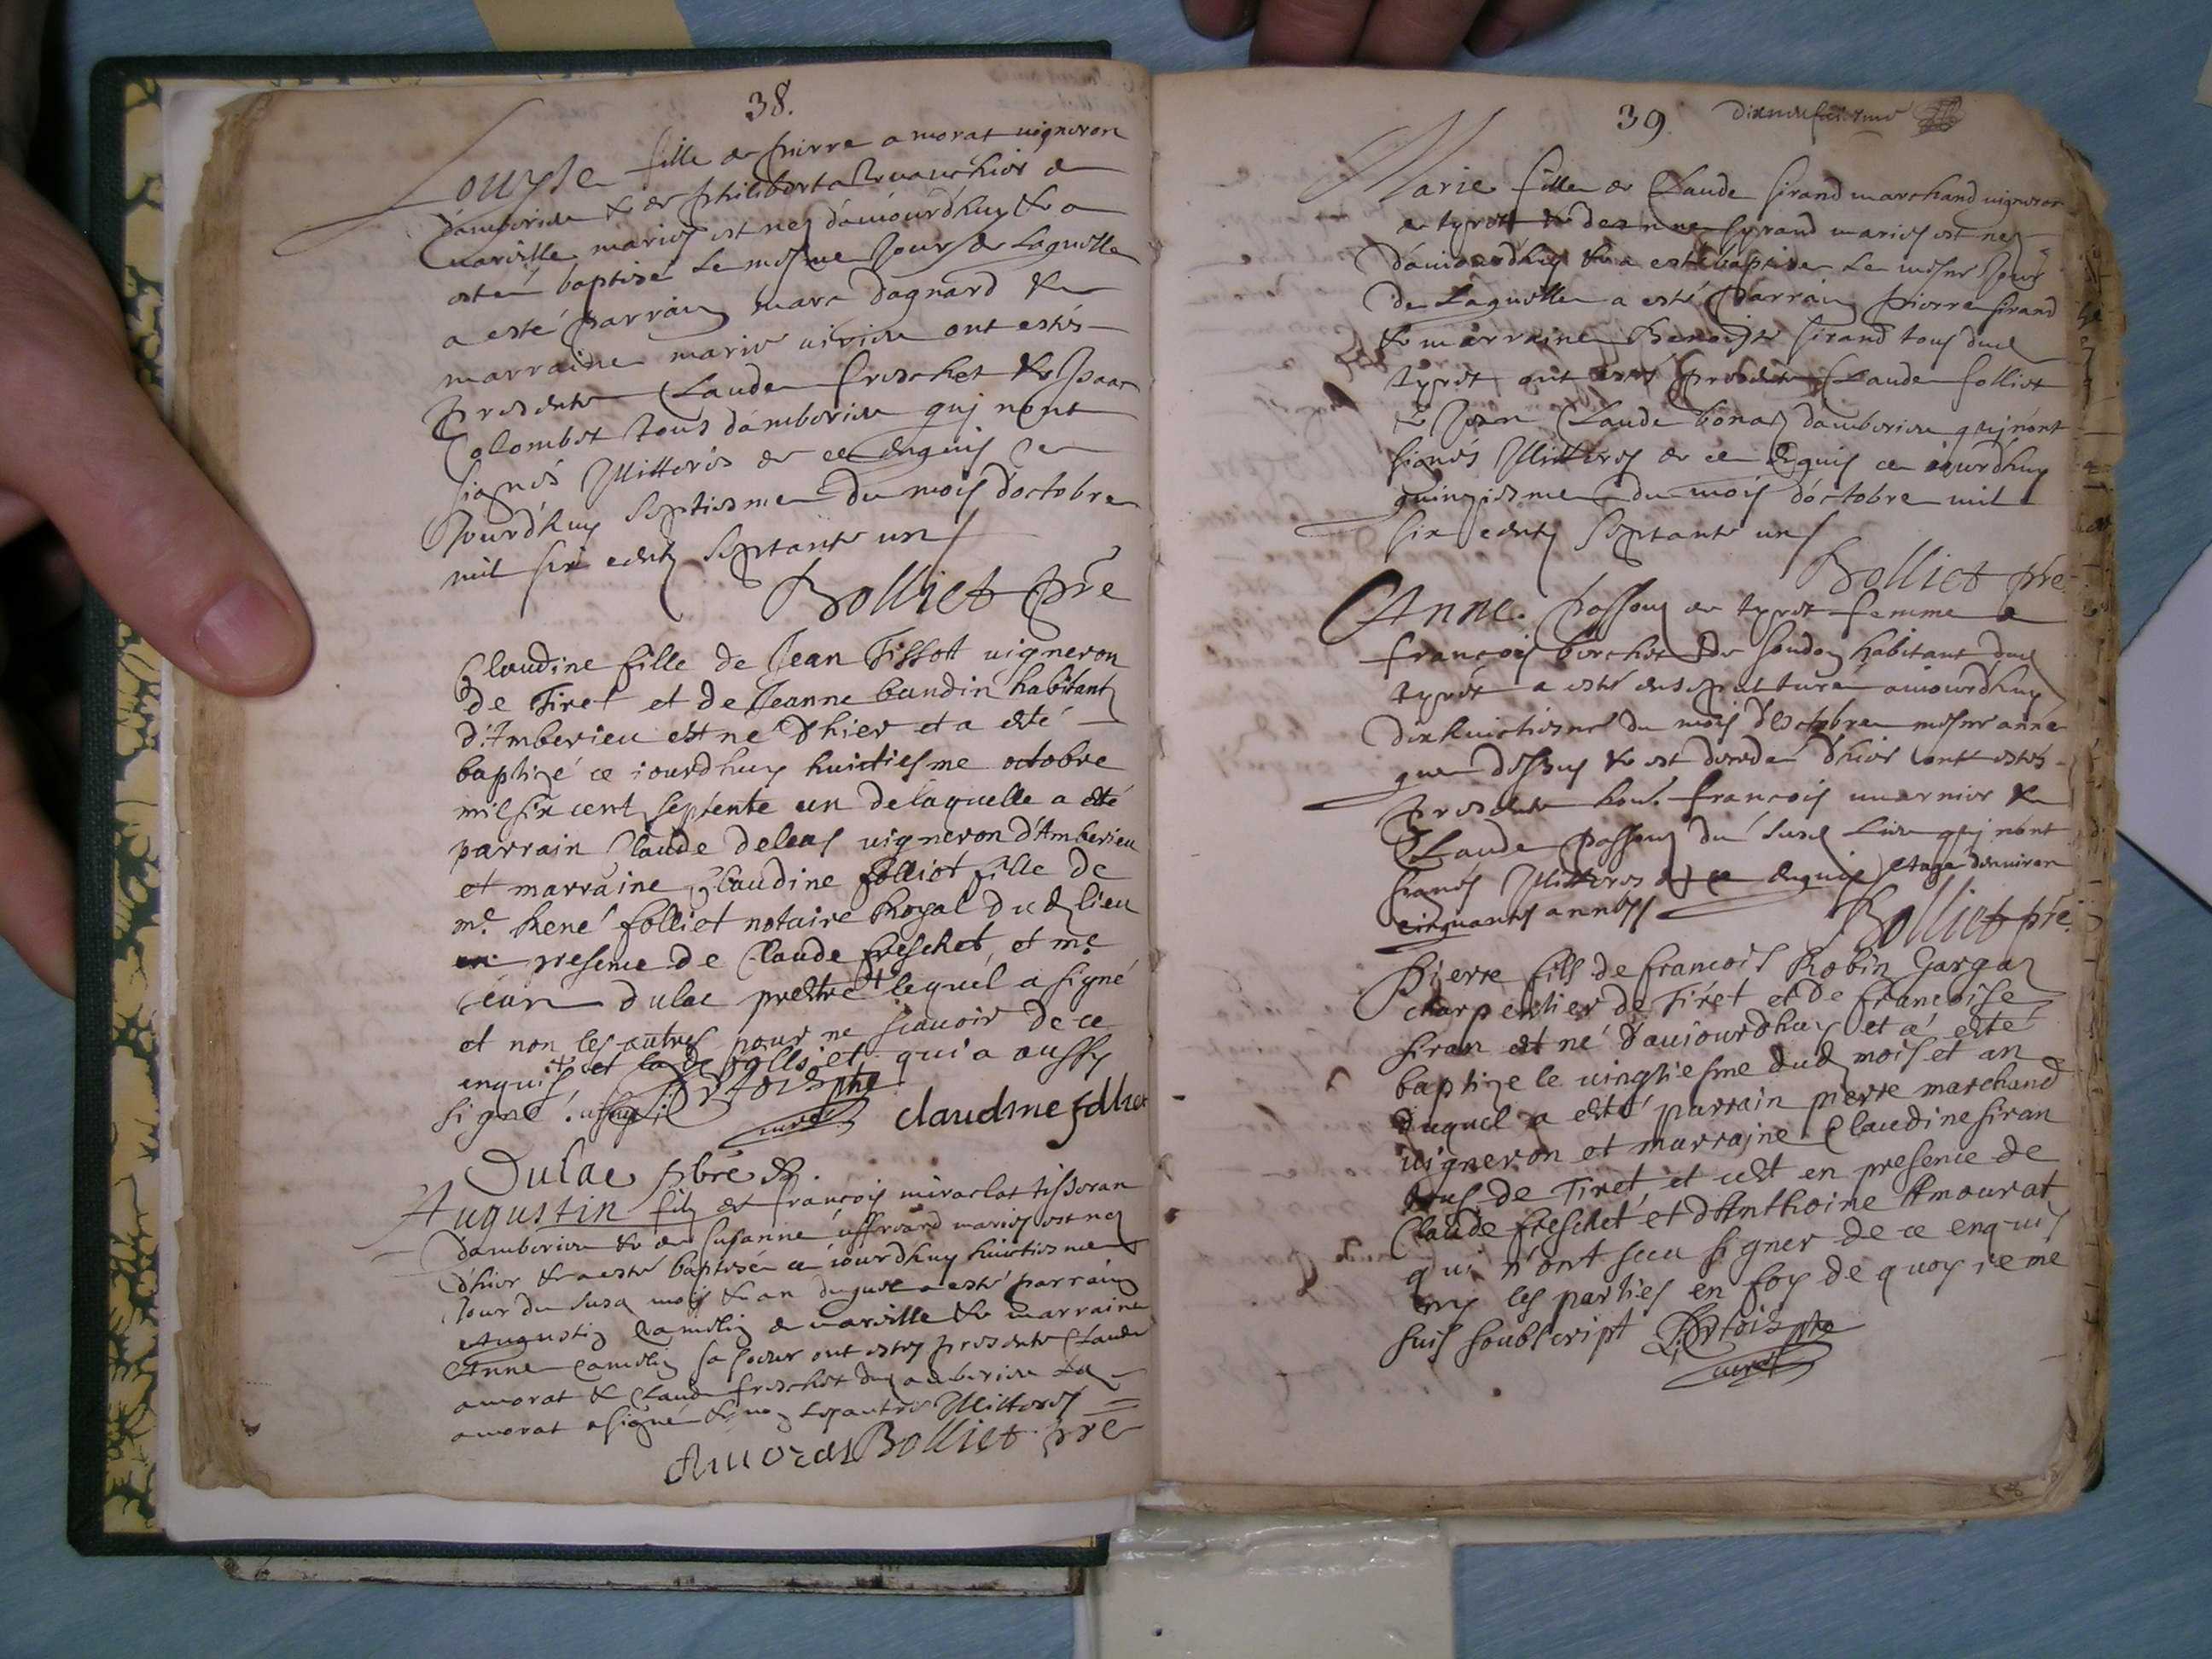 38.
Louyse fille de pierre amorat vigneron
d'amberieu & de philiberta
mariés est nez d'aujourd'huy & a
esté baptisé le mesme Jour de Laquelle
a esté parrain marc dagnard &
marraine marie ont estés
presents Claude freschet & Isaac
Colombet tous d'amberieu quj nont
signés Illitterés de ce enquis ce
Jourd'huy septiesme du mois d'octobre
mil six cents septante un
Bolliet pre
Claudine fille de Jean Tissot vigneron
de Tiret et de Jeanne baudin habitants
d'Amberieu est né d'hier et a esté
baptizé ce iourdhuy huictiesme octobre
mil six cent septente un de laquelle a esté
parrain Claude deleas vigneron d'Amberieu
et marraine Claudine folliot fille de
me. René folliet notaire Royal dud lieu
presence de Claude freschet, et me
Jean dulac prestre lequel a signé
et non les autres pour ne scauoir de ce
enquis, et lade folliet qui a aussy
signé
curé claudine folliet
Dulac pbre
Augustin filz de françois miraclat tissoran
d'amberieu & de Susanne mariés est nez
d'hier & a esté baptisé ce iourdhuy huictiesme
Jour du susd mois & an duquel a esté parrain
Augustin & marraine
Anne sa soeur ont estes presents Claude
amorat & Claude freschet dud amberieu Led
amorat a signé & non les autres Illiterés
Amorat Bolliet pre
39.
Marie fille de Claude sirand marchand vigneron
de tyret & de syrand mariés est nez
d'aujourdhuy & a esté baptisée Le mesme Jour
De Laquelle a esté parrain pierre sirand
& marraine Benoiste sirand tous dud
tyret ont estés presents Claude folliet
& Jean Claude bonaz d'amberieu quj n'ont
signés Illitterés de ce enquis ce iourdhuy
quinziesme du mois d'octobre mil
six cents septante un
Bolliet pre
Anne passouz de tyret femme a
françois habitant dud
tyret a esté ensepulturé aujourdhuy
dixhuictiesme du mois d'octobre mesme anné
que dessus & est decedé d'hier sont estés
presents hon. françois &
Claude passouz du susd Lieu quj nont
signés Illitteres de ce enquis etage denuiron
cinquante années
Bolliet pre
Pierre fils de francois Robin Gargaz
charpentier de Tiret et de francoise
siran est né d'auiourdhuy et a esté
baptize le uingtiesme dud mois et an
duquel a esté parrain pierre marchand
uigneron et marraine Claudine siran
tous de Tiret et cest en presence de
Claude freschet et d'Anthoine Amourat
qui n'ont sceu signer de ce enquis
les parties en foy de quoy ie me
suis soubscript
curé